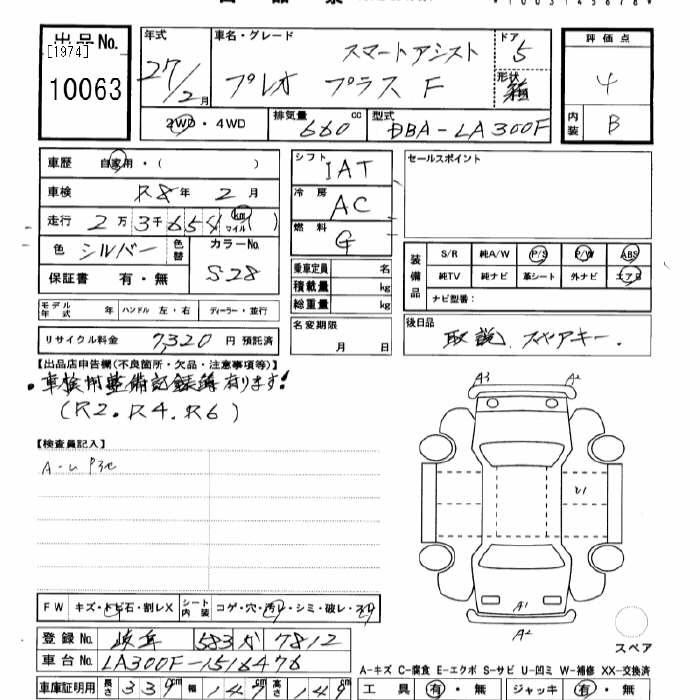 出品No.
[1974]
10063
年式
27/2月
車名・グレード
スマートアシスト
プレオ プラス F
ドア
5
形状
箱
評価点
4
内装
B
2WD・4WD
排気量
660 cc
型式
DBA-LA300F
車歴 自家用・( )
車検 R8年 2月
走行 2万3千658 km マイル ( )
色 シルバー
色替
カラーNo.
S28
保証書 有・無
モデル年式 年
ハンドル 左・右
ディーラー・並行
リサイクル料金 7,320 円 預託済
シフト IAT
冷房 AC
燃料 G
乗車定員 名
積載量 kg
総重量 kg
名変期限
月 日
セールスポイント
装備品
S/R 純A/W P/S P/W ABS
純TV 純ナビ 革シート 外ナビ エアB
ナビ型番:
後日品
取説、スペアキー.
【出品店申告欄(不良箇所・欠品・注意事項等)】
・車検用整備記録簿有ります!
(R2.R4.R6)
【検査員記入】
A3
A2
U1
A1
A2
スペア
FW キズ・トビ石・割レX
シート内装 コゲ・穴・汚レ・シミ・破レ・スリ
登録No. 岐阜 583 か 7812
車台No. LA300F-1516476
A-キズ C-腐食 E-エクボ S-サビ U-凹ミ W-補修 XX-交換済
車庫証明用 長さ 339cm 幅 147cm 高さ 149cm
工具 有・無
ジャッキ 有・無